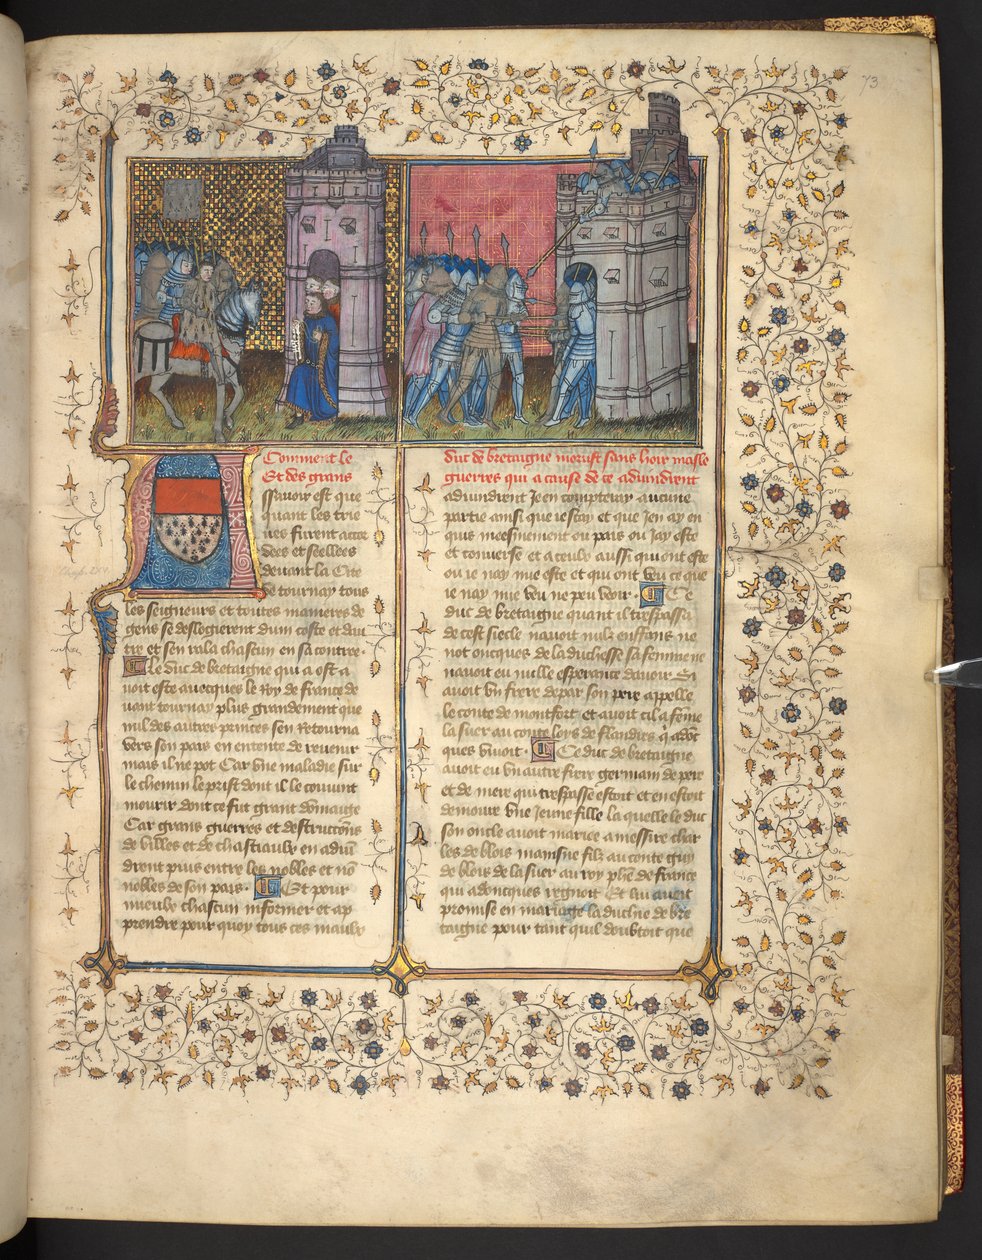 73
Comment le duc de bretaigne morust sans hoir masle
Et des grans guerres qui a cause de ce advindrent
Assavoir est que
quant les trie
ves furent acce
dees et seellees
devant la Cite
de tournay tous
les seigneurs et toutes manieres de
gens se deslogierent dun coste et dau
tre et sen rala chascun en sa contre
Le duc de bretaigne qui a ost a
voit este avecques le Roy de france de
vant tournay plus grandement que
nul des autres princes sen Retourna
vers son pais en entente de revenir
mais il ne pot Car une maladie sur
le chemin le prist dont il le convint
mourir dont ce fut grant dommaige
Car grans guerres et destructions
de villes et de chastiaulx en advin
drent puis entre les nobles et no
nobles de son pais. Et pour
mieulx chascun informer et ap
prendre pour quoy tous ces maulx
advindrent Jeen compteray aucune
partie ainsi que ie scay et que Jen ay en
quis meesmement ou pais ou Jay este
et converse et a ceulx aussi qui ont este
ou ie nay mie este et qui ont veu ce que
ie nay mie veu ne peu veoir. Ce
duc de bretaigne quant il trespassa
de cest siecle navoit nulz enffans ne
not oncques de la duchesse sa femme ne
navoit eu nulle esperance davoir Si
avoit un frere depar son pere appelle
le conte de montfort et avoit cil a feme
la suer au conte loys de flandres qadonc
ques vivoit. Ce duc de bretaigne
avoit eu un autre frere germain de pere
et de mere qui trespasse estoit et en estoit
demouré une Jeune fille laquelle le duc
son oncle avoit mariee a messire char
les de blois mainsne filz au conte guy
de blois de la suer au roy phe de france
qui adoncques regnoit Et lui avoit
promise en mariage la duchie de bre
taigne pour tant quil doubtoit que